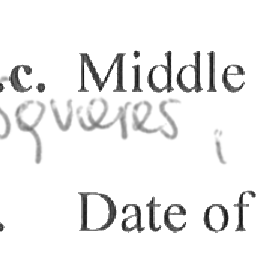 .c. Middle
squeres,
. Date of